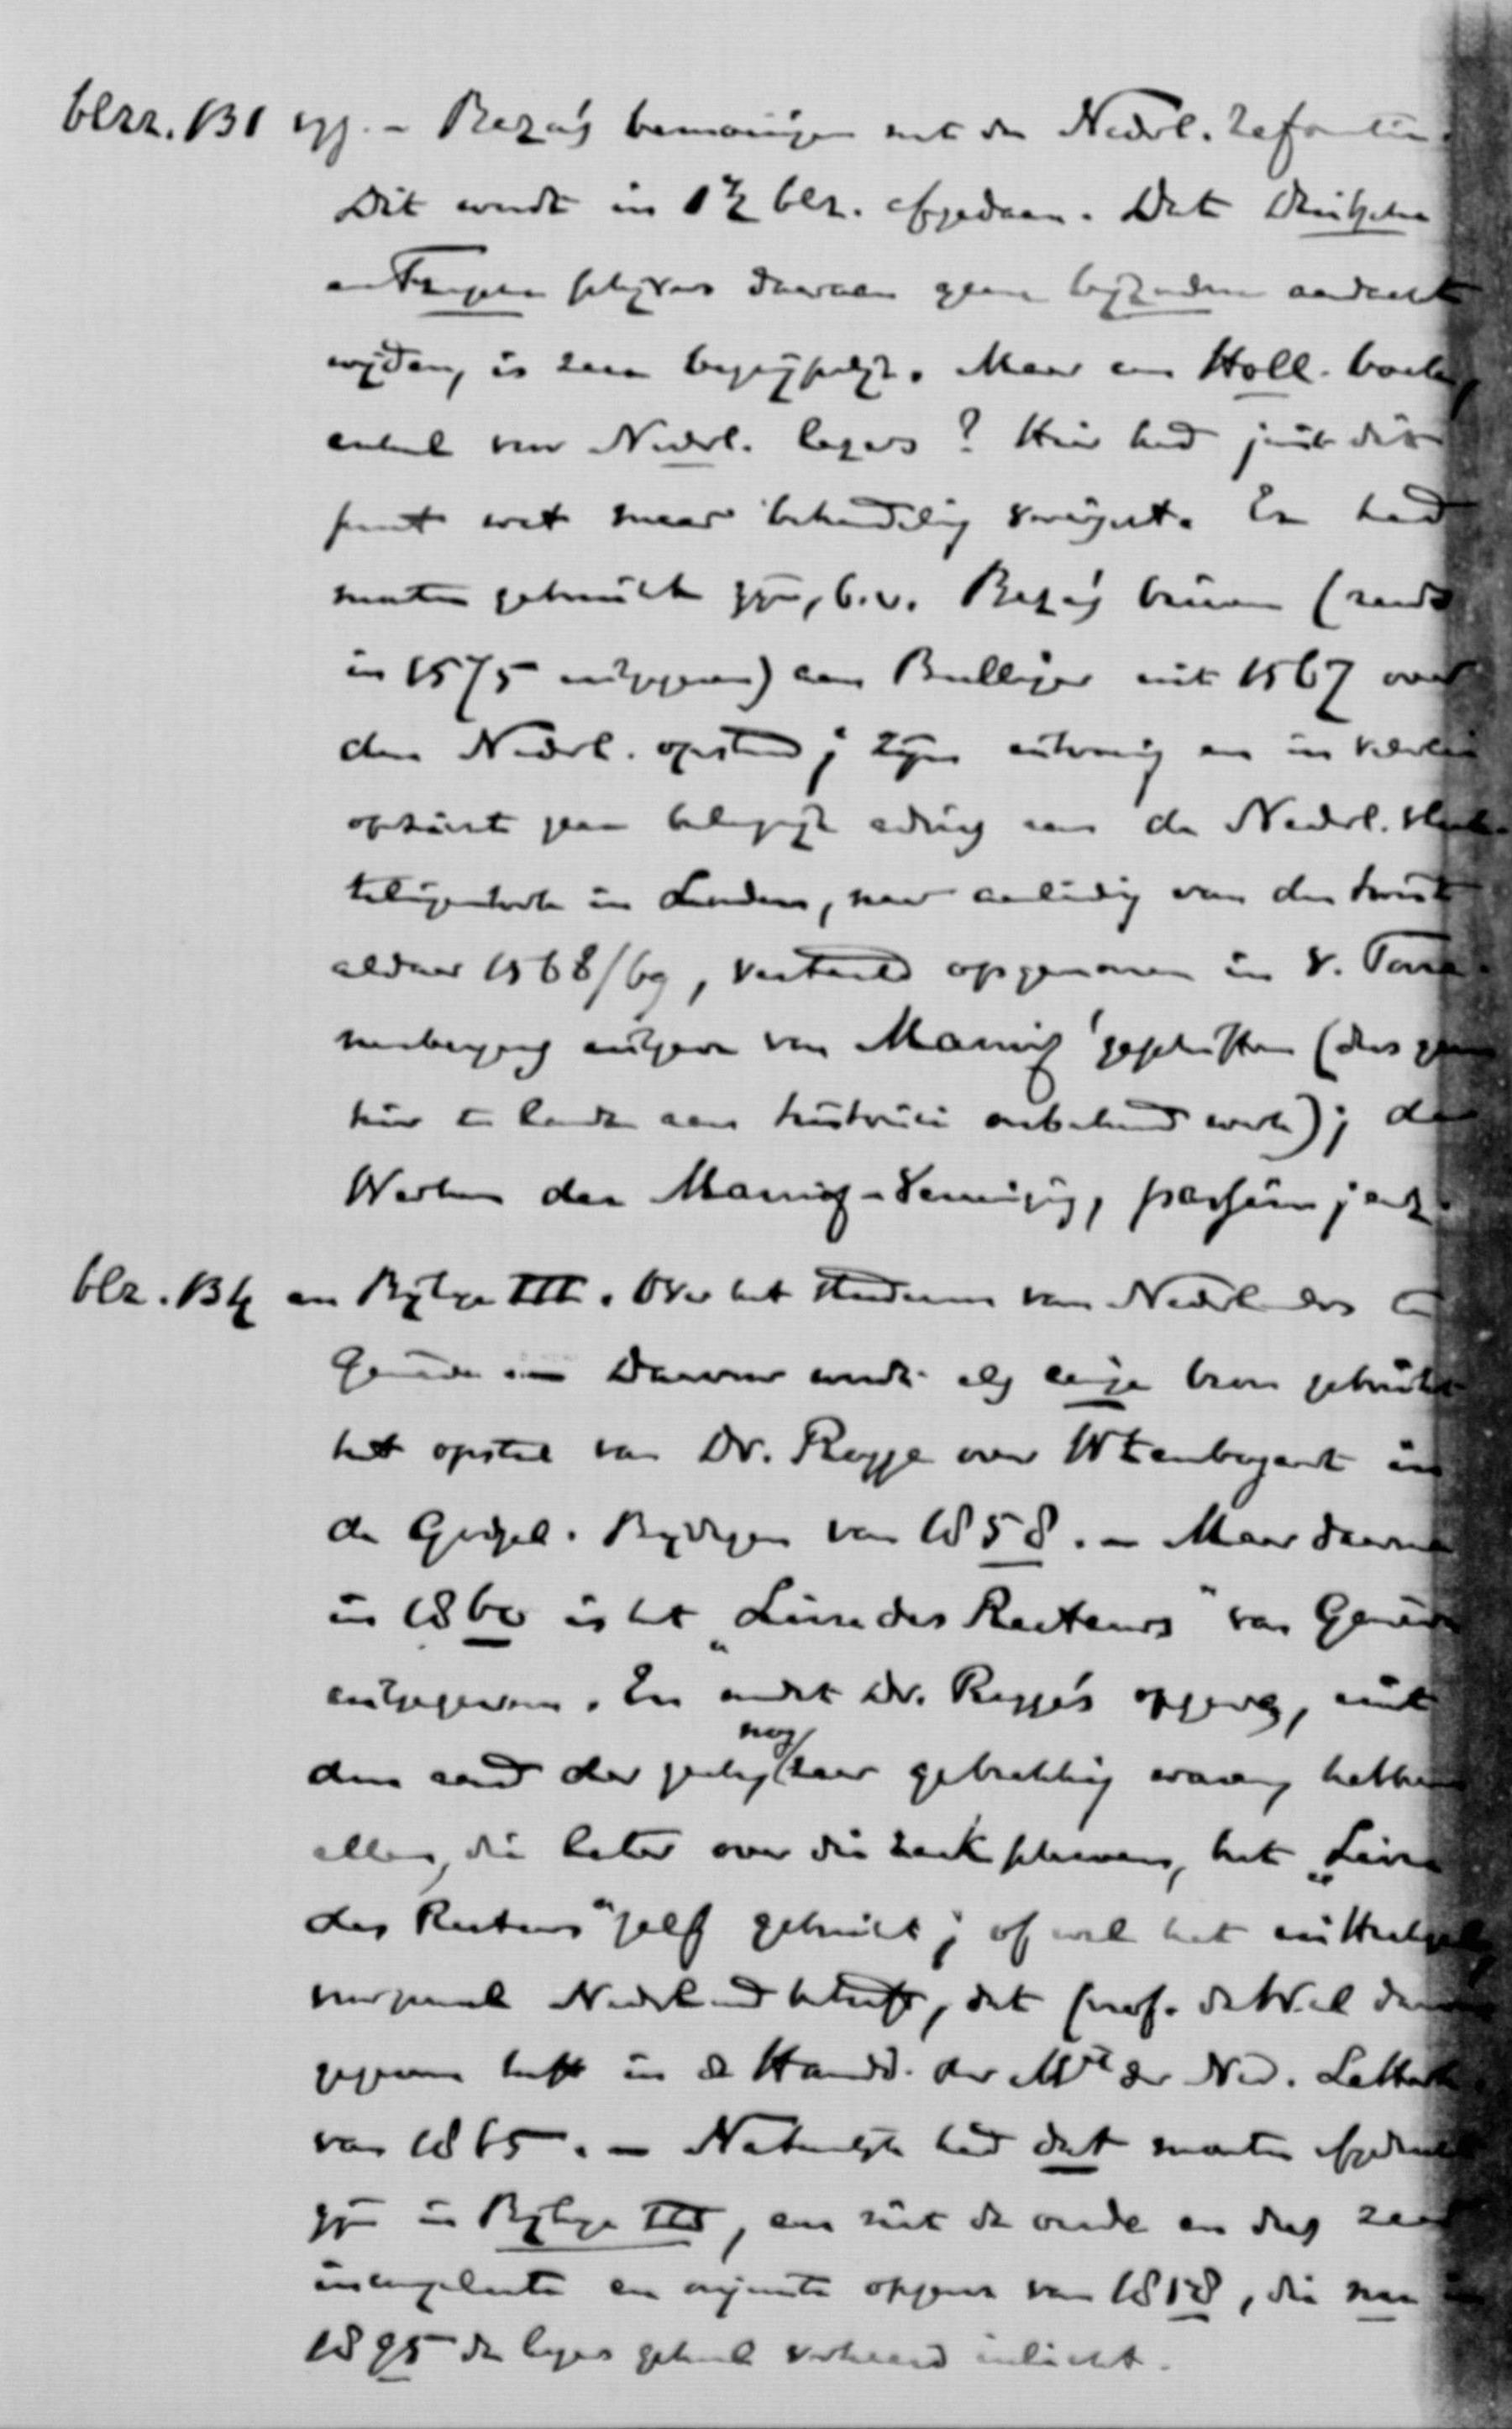 blzz. 131 vgg. - Beza's bemoeiingen met de Nederl. Reformatie.
Dit wordt in 1½ blz. afgedaan. Dat Duitsche
en Fransche schrijvers daaraan geene bijzondere aandacht
wijden, is zeer begrijpelijk. Maar een Holl. boek,
enkel voor Nederl. lezers? Hier had juist dit
punt wat meer behandeling vereischt. Er had
moeten gebruikt zijn, b.v. Beza's brieven (reeds
in 1575 uitgegeven) aan Bullinger uit 1567 over
den Nederl. opstand; zijn uitvoerig en in velerlei
opzicht zeer belangrijk advies aan de Nederl. vluch-
telingenkerk in Londen, naar aanleiding van den twist
aldaar 1568/69, vertaald opgenomen in v. Toore-
nenbergens uitgave van Marnix' geschriften (dus geen
hier te lande aan historici onbekend werk); de
Werken der Marnix-Vereeniging, passim; enz.
blz. 134 en Bijlage III. Over het studeeren van Nederlanders te
Genève. Daarvoor wordt als eenige bron gebruikt
het opstel van Dr. Rogge over Wtenbogaert in
de Godgel. Bijdragen van 1858. - Maar daarna
in 1860 is het „Livre du Recteur" van Genève
uitgegeven. En omdat Dr. Rogge's opgaven, uit
den aard der zaak, nog zeer gebrekkig waren, hebben
allen, die later over die zaak schreven, het „Livre
du Recteur" zelf gebruikt; of wel het uittreksel,
voor zooveel Nederland betreft, dat prof. de Wal daarvan
gegeven heeft in de Handel. der Mij der Ned. Letterk.
van 1865. - Natuurlijk had dat moeten afgedrukt
zijn in Bijlage III, en niet de oude en dus zeer
incomplete en onjuiste opgave van 1858, die nu in
1895 de lezers geheel verkeerd inlicht.